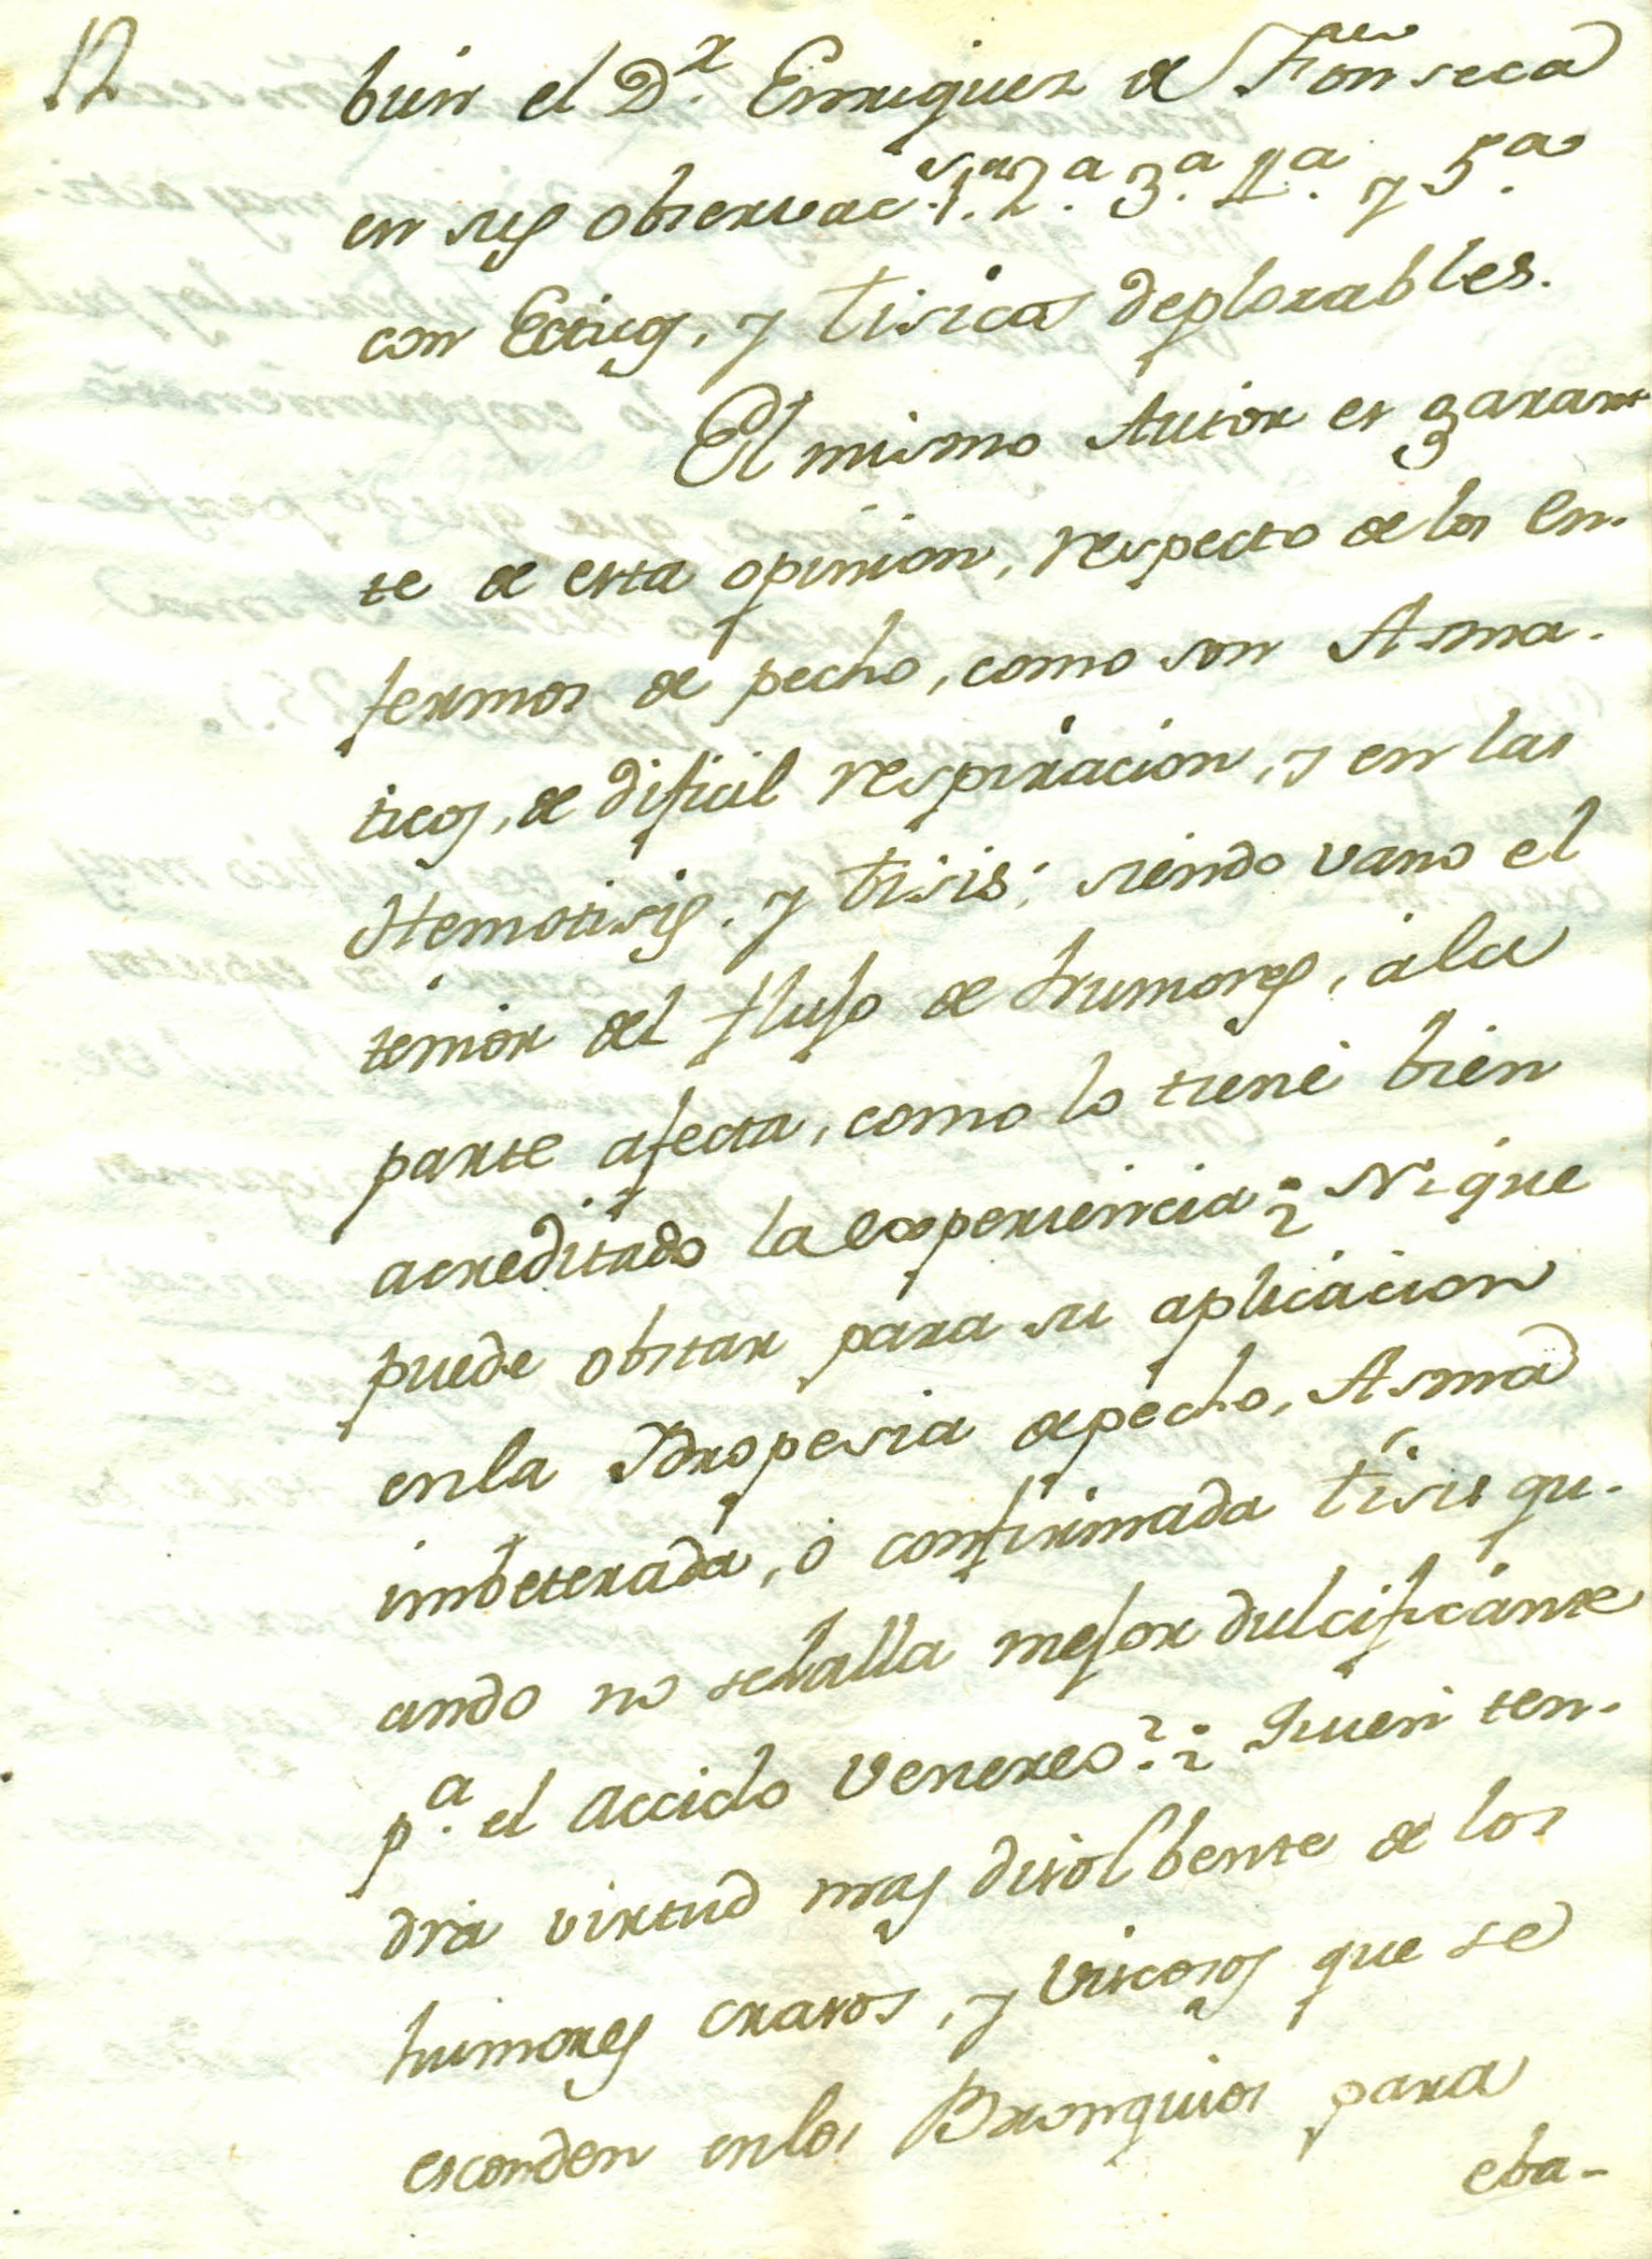 12
bien el D.r Enriquez de Fonseca
en sus observac.s 1.a 2.a 3.a 4.a y 5.a
con Ecticos, y tisicas deplorables.
El mismo Autor es garan-
te de esta opinion, respecto de los en-
fermos de pecho, como son Asma-
ticos, de dificil respiracion, y en las
Hemotisis, y tisis; siendo vano el
temor del flujo de humores, ála
parte afecta, como lo tiene bien
acreditado la experiencia ¿Ni que
puede obstar para su aplicacion
enla Idropesia depecho, Asma
imbeterada, ó confirmada tisis qu-
ando no sehalla mejor dulcificante
p.a el accido Venereo? ¿Quien ten-
dria virtud mas disolbente de los
humores crasos, y viscosos que se
esconden enlos Bronquios para
eba-